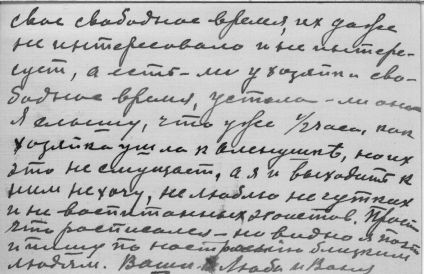 свое свободное время, их даже
не интересовало и не интере-
сует, а есть-ли у хозяйки сво-
бодное время, устала-ли она
Я слышу, что уже 1/2 часа, как
хозяйка ушла к Аленушке, но их
это не смущает, а я и выходить к
ним не хочу, не люблю не чутких
и не воспитанных эгоистов. Прост
что расписался - но видно я поэт
и пишу по настроению близким
людям. Ваши Люба и Ваня